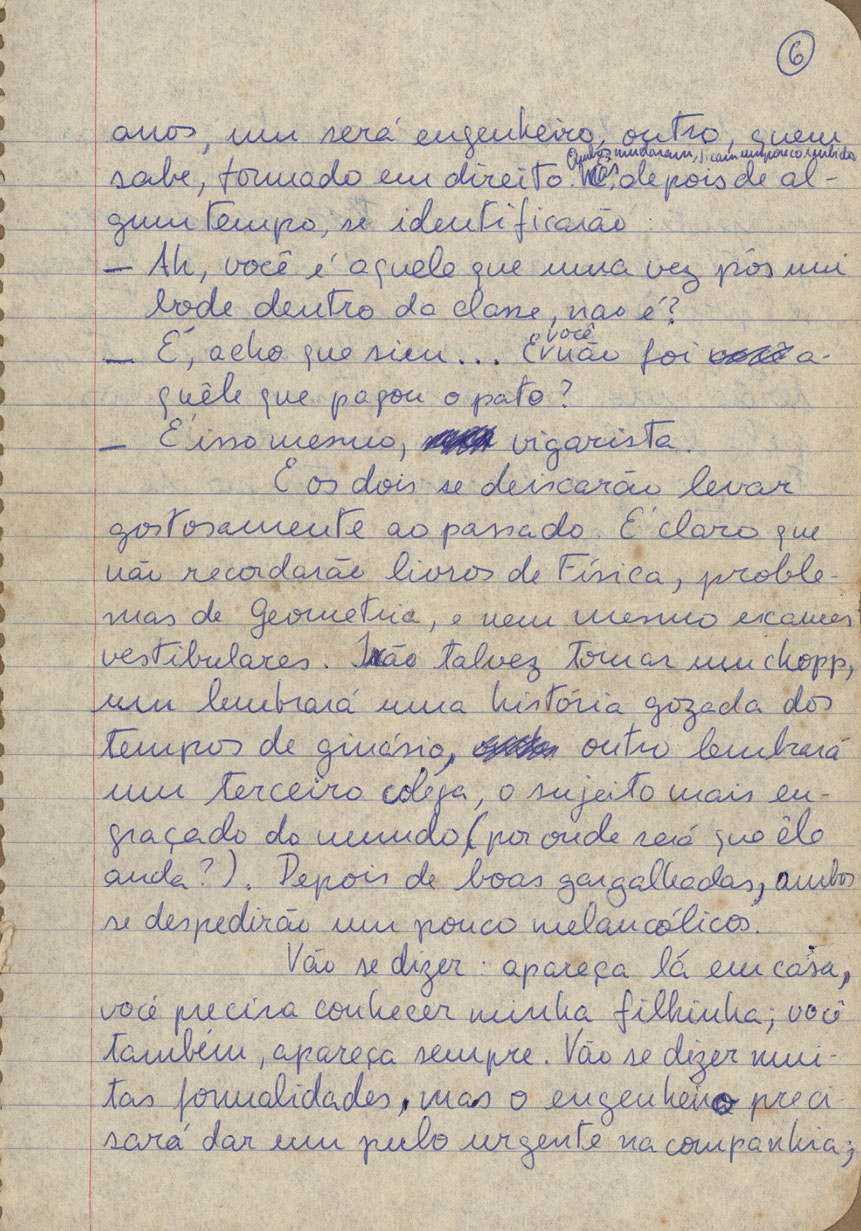 6
anos, um será engenheiro, outro, quem
Ambos mudaram, ficam um pouco inibidos
sabe, formado em direito. Mas, depois de al-
gum tempo, se identificarão:
— Ah, você é aquele que uma vez pôs um
bode dentro da classe, não é?
você
— É, acho que sim... E não foi a-
quêle que pagou o pato?
— É isso mesmo, vigarista.
E os dois se deixarão levar
gostosamente ao passado. É claro que
não recordarão livros de Física, proble-
mas de Geometria, e nem mesmo exames
vestibulares. Irão talvez tomar um chopp,
um lembrará uma história gozada dos
tempos de ginásio, outro lembrará
um terceiro colega, o sujeito mais en-
graçado do mundo (por onde será que êle
anda?). Depois de boas gargalhadas, ambos
se despedirão um pouco melancólicos.
Vão se dizer: apareça lá em casa,
você precisa conhecer minha filhinha; você
também, apareça sempre. Vão se dizer mui-
tas formalidades, mas o engenheiro preci-
sará dar um pulo urgente na companhia;